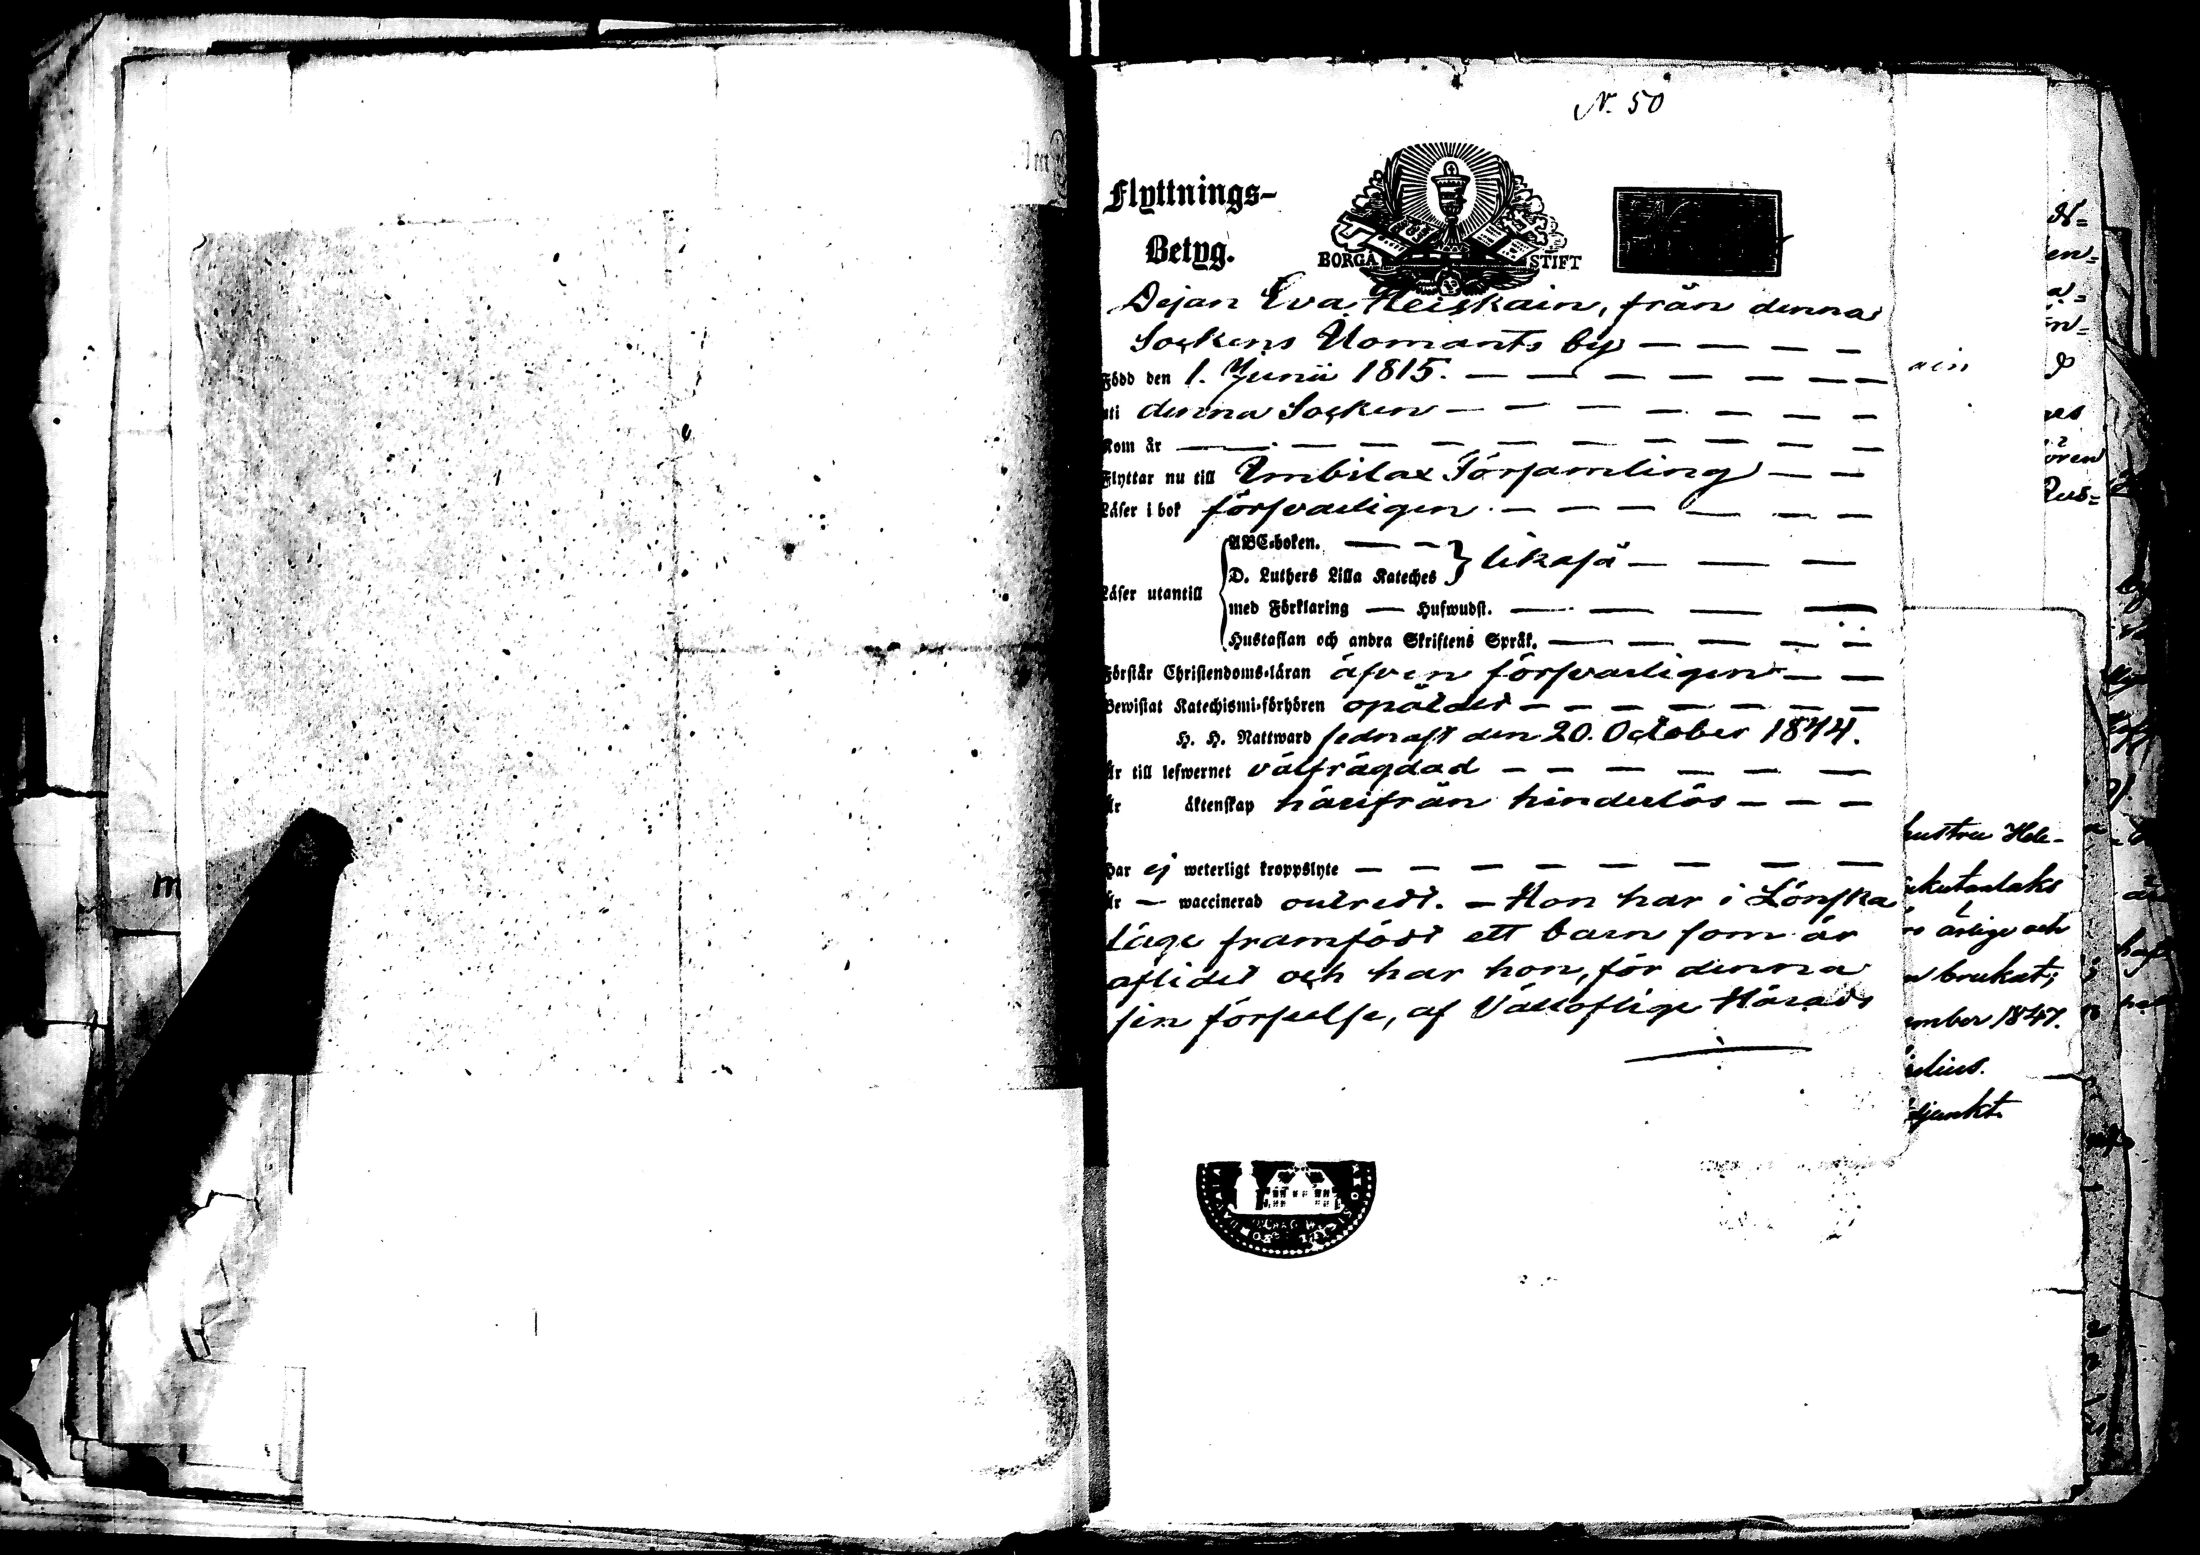 N. 50
Flyttnings-
Betyg.
BORGÅ STIFT
Dejan Eva Heiskain, från denna
Sockens Uomants by
Född den 1. Junii 1815.
uti denna Socken
Kom år
Flyttar nu till Ilmbilax Församling
Läser i bok försvarligen
ABC-boken.
D. Luthers Lilla Kateches } likaså
Läser utantill
med Förklaring — Hufwudst.
Hustaflan och andra Skriftens Språk.
Förstår Christendoms-läran äfven försvarligen
Bewistat Katechismi-förhören opåtalet
H. H. Nattward sednast den 20. October 1844.
Är till lefwernet välfrägdad
Är äktenskap härifrån hinderlös
Har ej weterligt kroppslyte
Är — waccinerad outredt. — Hon har i Lönska
läge framfödt ett barn som är
aflidet och har hon, för denna
sin förseelse, af Vällofliga Härads
ain
hustru Hele-
ärlige och
brukat;
ember 1847.
djunkt.